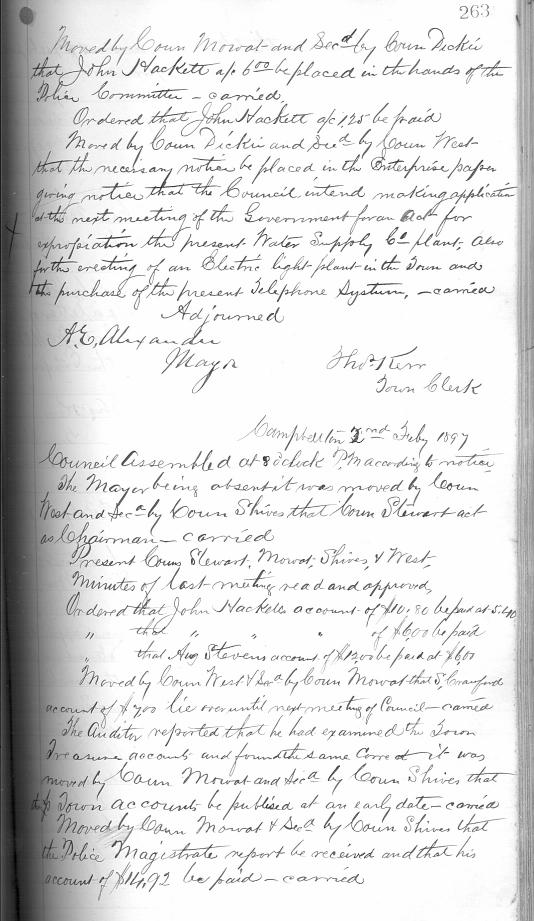 263
Moved by Coun Mowat and Secd by Coun Dickie
that John Hackett a/c 6 00 be placed in the hands of the
Police Committee – carried
Ordered that John Hackett a/c 1 25 be paid
Moved by Coun Dickie and Secd by Coun West
that the necessary notice be placed in the Enterprise paper
giving notice that the Council intend making application
at the next meeting of the Government for an act for
expropiation the present Water Supply Co plant, also
for the erecting of an Electric light plant in the Town and
the purchase of the present Telephone System, – carried
Adjourned
A. E. Alexander
Mayor
Thos Kerr
Town Clerk
Campbellton 2nd Feby 1897
Council Assembled at 8 o'clock P.M according to notice
The Mayor being absent it was moved by Coun
West and Secd by Coun Shives that Coun Stewart act
as Chairman – carried
Present Couns Stewart, Mowat, Shives, & West,
Minutes of last meeting read and approved,
Ordered that John Hacketts account of $10.80 be paid at 5.40
" that " " " of $6.00 be paid
" that Aug Stevens account of $12.00 be paid at $6.00
Moved by Coun West & Secd by Coun Mowat that S, Crawford
account of $7.00 lie over until next meeting of Council – carried
The Auditor reported that he had examined the Town
Treasure accounts and found the same Correct it was
moved by Coun Mowat and Secd by Coun Shives that
the Town accounts be publised at an early date – carried
Moved by Coun Mowat & Secd by Coun Shives that
the Police Magistrate report be received and that his
account of $14.92 be paid – carried